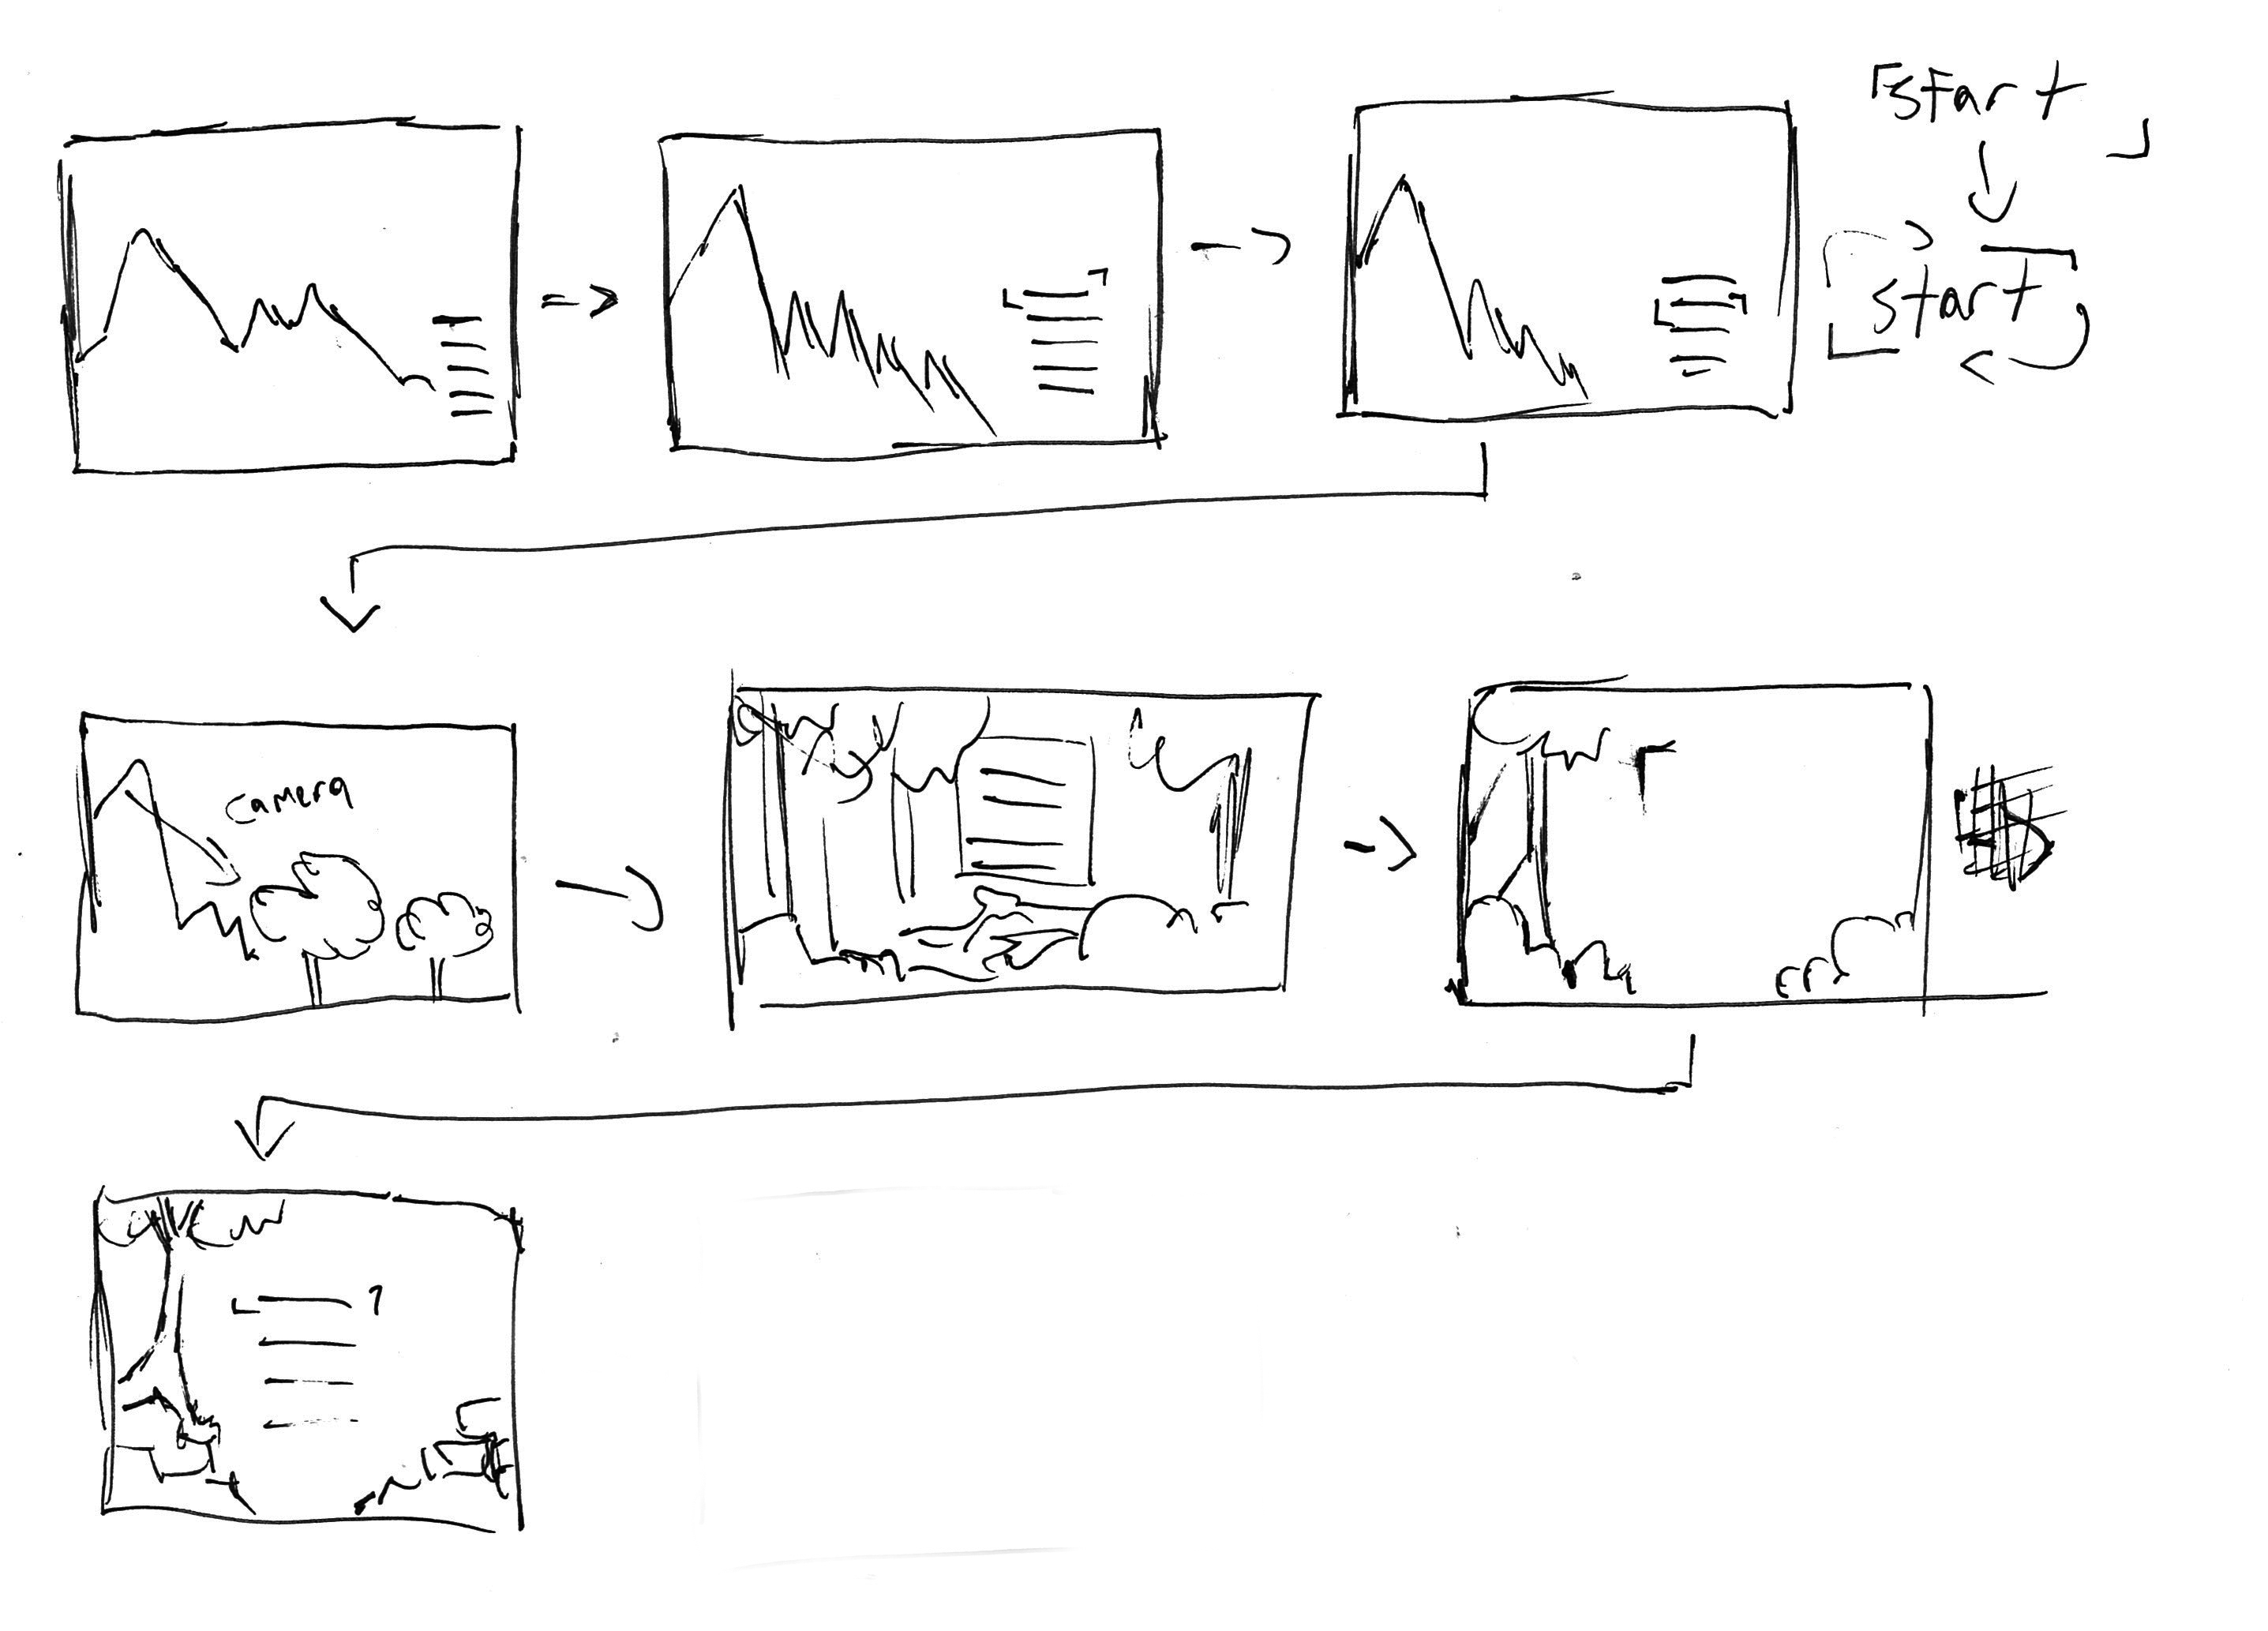 start
start
camera